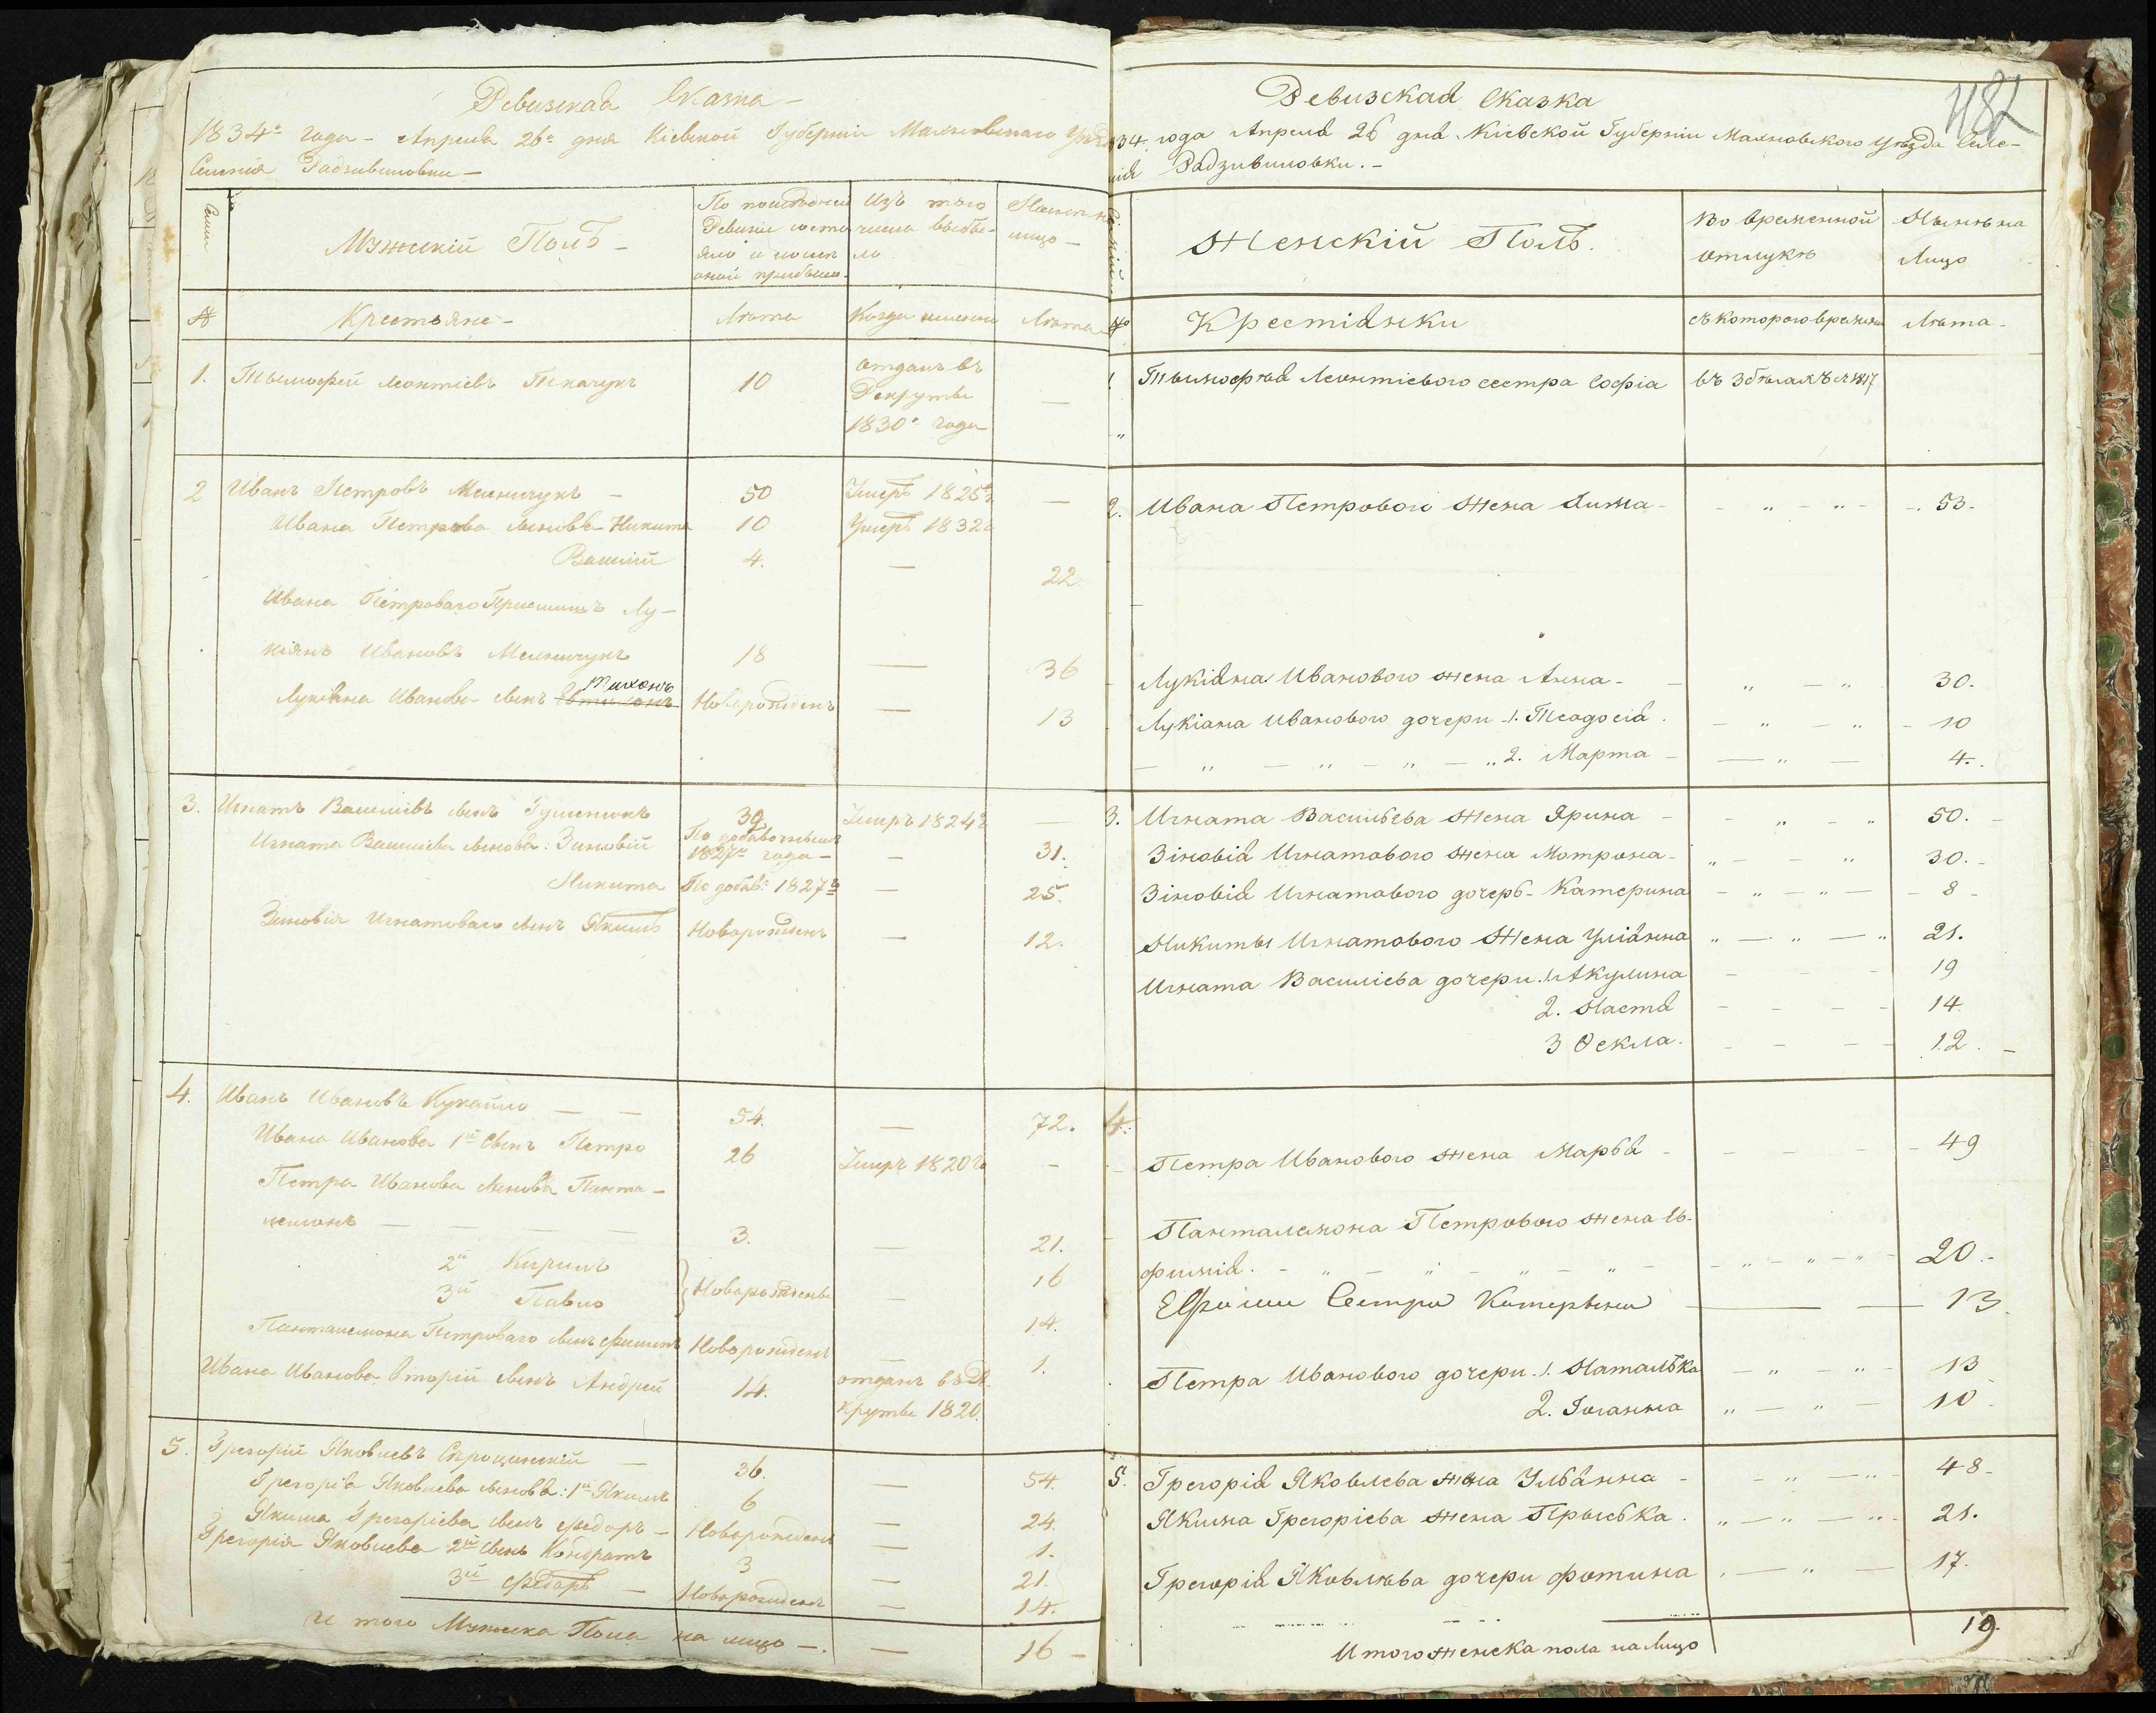 Ревизская Сказка
1834го года Апреля 26го дня Кіевской Губерніи Махновскаго Уезда
Селенія Радзивиловки
Семьи
Мужескій Полъ
По последней
Ревизіи состо
яло и после
оной прибыло
Изъ того
числа выбы-
ло
Ныне на
лицо
№
Крестьяне
Лета
Когда именно
Лета
1. Тымофей Леонтіевъ Ткачукъ 10 отданъ въ
Рекруты
1830го года —
2 Иванъ Петровъ Мельничукъ — 50 Умеръ 1825г. —
Ивана Петрова сыновья Никита 10 Умеръ 1832г
Василій 4. — 22
Ивана Петроваго Приемышъ Лу-
кіянъ Ивановъ Мельничукъ 18 — 36
Тихонъ
Лукіяна Иванова сынъ Новорожденъ — 13
3. Игнатъ Василіевъ сынъ 39 Умеръ 1824г —
Игната Василіева сыновья: Зиновій По добавочной
1827го года — — 31.
Никита По добав: 1827г — 25.
Зиновія Игнатоваго сынъ Якимъ Новорожденъ — 12.
4. Иванъ Ивановъ Кукайло — — 54. — 72.
Ивана Иванова 1й Сынъ Петро 26 Умеръ 1820г —
Петра Иванова сыновья Панта-
лемонъ — — — — 3. — 21.
2й Кирилъ 16
3й Павло Новорожденые — 14.
Панталемона Петроваго сынъ Филипъ Новорожденъ — 1.
Ивана Иванова вторій сынъ Андрей 14. отданъ въ Ре
круты 1820.
5. Грегорій Яковлевъ — 36. — 54.
Грегорія Яковлева сыновья: 1й Якимъ 6 — 24.
Якима Грегоріева сынъ Федоръ — Новорожденъ — 1.
Грегорія Яковлева 2й Сынъ Кондратъ 3 — 21.
3й Федоръ — Новорожденъ — 14.
И того Мужеска Пола на лицо — . — 16 —
482
Ревизская Сказка
834. года Апреля 26 дня Кіевской Губерніи Махновского Уезда Селе-
нія Радзивиловки. —
Женскій Полъ.
Во временной
отлуке
Ныне на
Лицо
№
Крестіянки
съ которого времени
Лета
1. Тымофея Леонтіевого сестра Софіа въ 1817
2. Ивана Петрового жена - „ - „ - 53.
Лукіяна Иванового жена Анна - — „ — „ 30.
Лукіана Иванового дочери - 1. Теодосія - „ — „ - 10
— „ — „ — „ — „ 2. Марта — — „ — 4.
3. Игната Васильева жена Ярина - - „ - „ 50. -
Зіновія Игнатового жена Мотрона - „ - - „ 30. -
Зіновія Игнатового дочерь - Катерина - „ - „ — - 8 -
Никиты Игнатового Жена Уліянна „ — „ — „ 21.
Игната Василіева дочери. 1. Акулина - - - 19
2. Настя - - - - 14.
3 Фекла. - - - - 12. -
4.
Петра Иванового жена Марья - - - - - 49
Панталемона Петрового жена Ев-
фимія. - „ - „ - „ - „ - - „ - „ - „ - 20. -
Сестра Катерына — — — 13.
Петра Иванового дочери. 1. Наталька — „ — „ - 13
2. Іоганна „ — „ — 10
5. Грегорія Яковлева жена Ульянна - - „ — „ 48 -
Якима Грегоріева жена Прыська. „ — „ — „ 21.
Грегорія Яковлева дочери Фотина — „ — 17.
И того женска пола на Лицо 19.